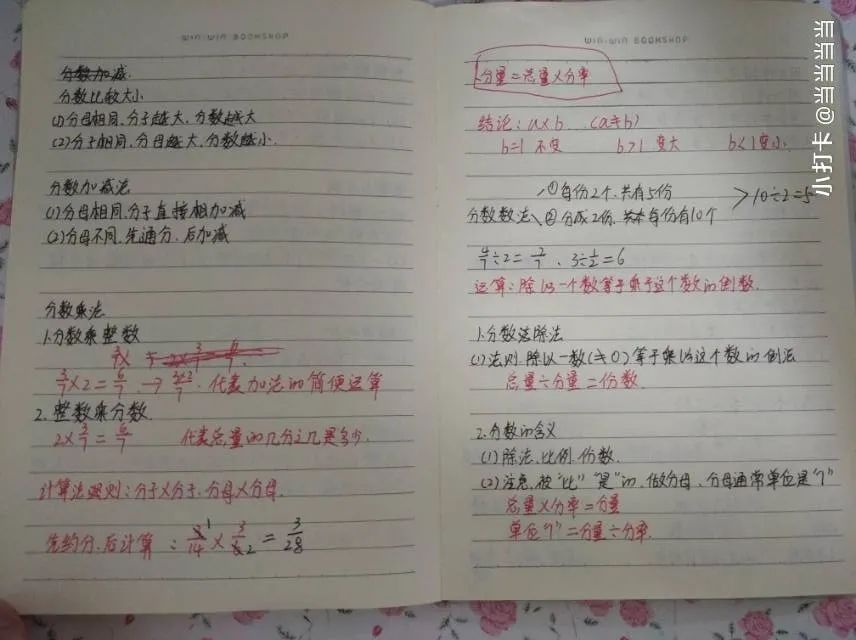 WIN-WIN BOOKSHOP
分数加减
分数比较大小
(1)分母相同,分子越大,分数越大
(2)分子相同,分母越大,分数越小.
分数加减法
(1)分母相同,分子直接相加减
(2)分母不同,先通分,后加减
分数乘法
1.分数乘整数
3/7×2=6/7 → 3×2/7. 代表加法的简便运算
2.整数乘分数
2×3/7=6/7 代表总量的几分之几是多少.
计算法规则:分子×分子,分母×分母.
先约分,后计算:
WIN-WIN BOOKSHOP
分量=总量×分率
结论:a×b (a≠b)
b=1 不变 b>1 变大 b<1变小.
①每份2个,共有5份
>10÷2=5
分数数法、②分成2份,共本每份有10个
4/7÷2=2/7、3÷1/2=6
运算:除以一个数等于乘于这个数的倒数.
1.分数除法
(1)法则.除以一数(≠0)等于乘以这个数的倒法
总量÷分量=份数.
2.分数的含义
(1)除法、比例、份数.
(2)注意,被“比”“是”的,做分母、分母通常单位是“1”
总量×分率=分量
单位“1”=分量÷分率.
小打卡@当当当当